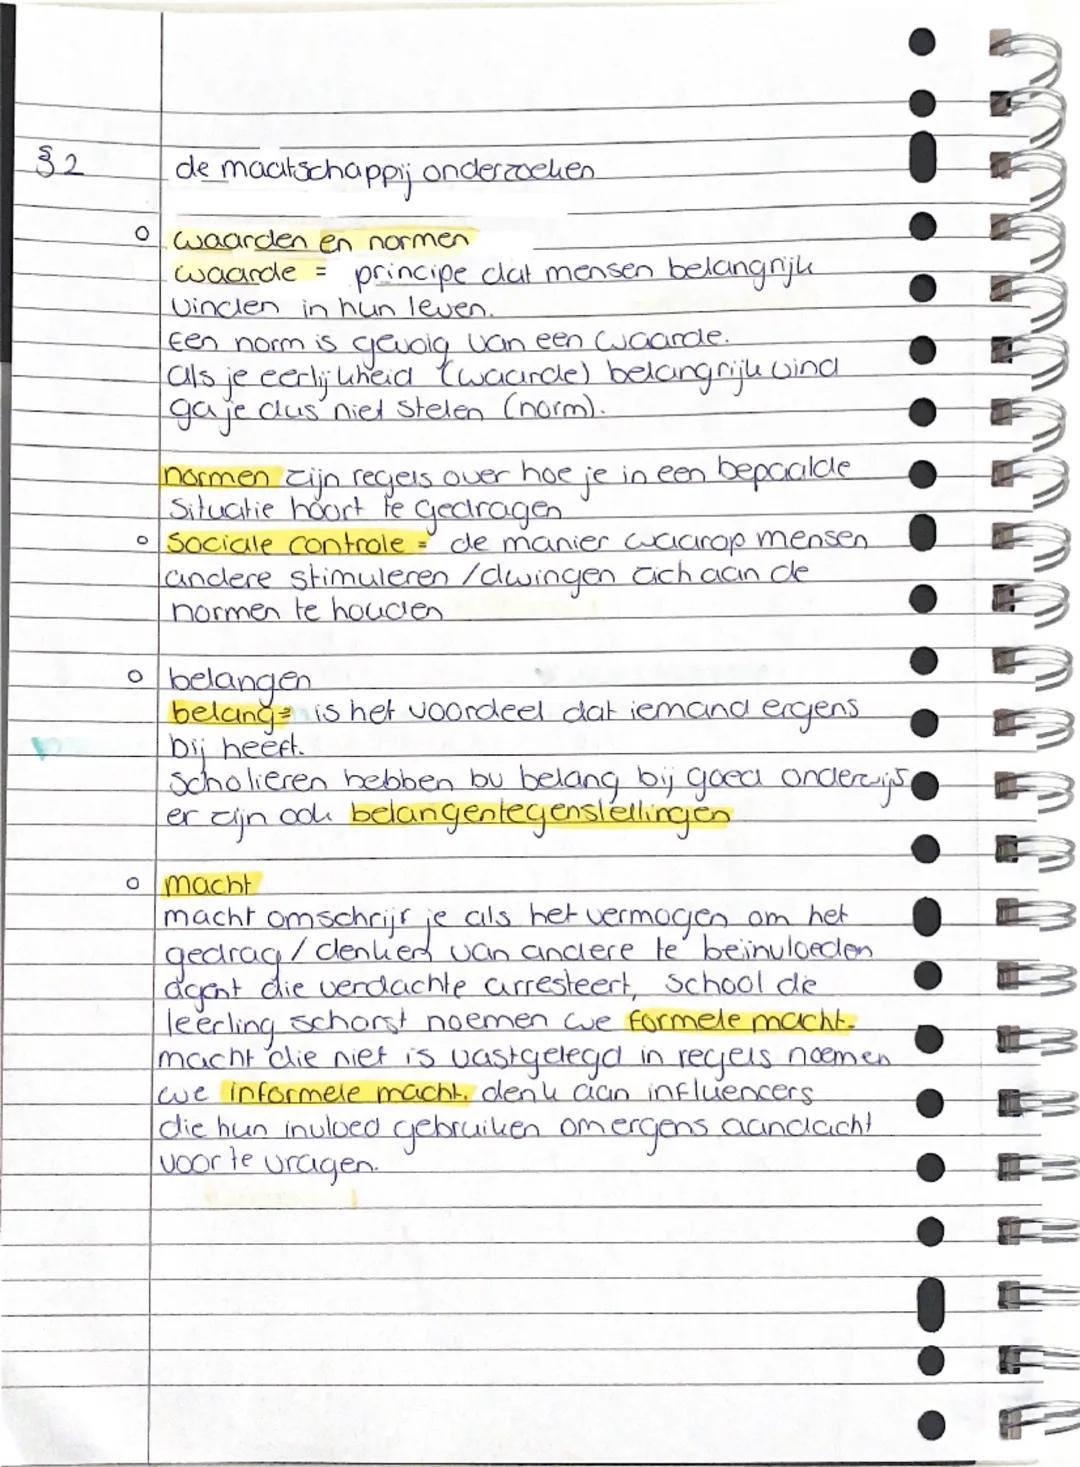 §2 de maatschappij onderzoeken
waarden en normen
waarde = principe dat mensen belangrijk
vinden in hun leven.
Een norm is gevolg van een waarde.
als je eerlijkheid (waarde) belangrijk vind
ga je dus niet stelen (norm).
normen zijn regels over hoe je in een bepaalde
situatie hoort te gedragen
Sociale controle = de manier waarop mensen
andere stimuleren / dwingen zich aan de
normen te houden
belangen
belang = is het voordeel dat iemand ergens
bij heeft.
Scholieren hebben bv belang bij goed onderwijs
er zijn ook belangentegenstellingen
macht
macht omschrijf je als het vermogen om het
gedrag / denken van andere te beïnvloeden
agent die verdachte arresteert, School die
leerling schorst noemen we formele macht.
macht die niet is vastgelegd in regels noemen
we informele macht. denk aan influencers
die hun invloed gebruiken om ergens aandacht
voor te vragen.